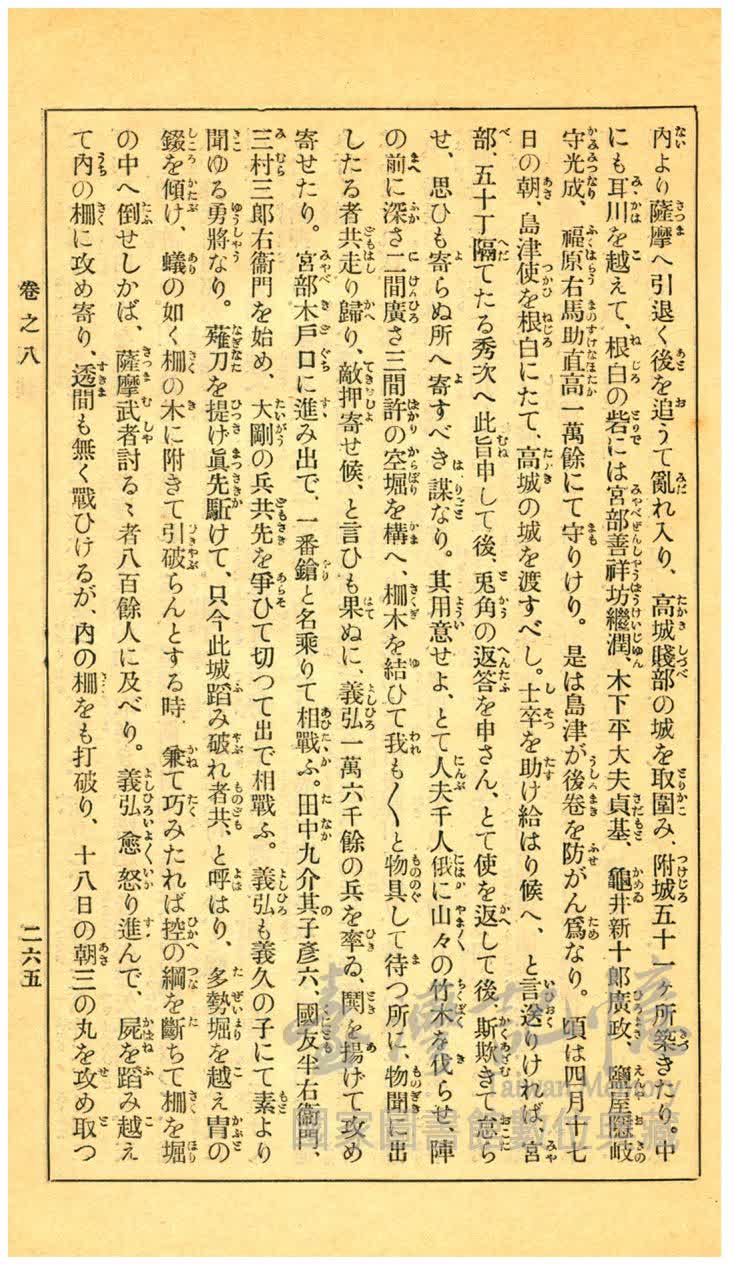 內より薩摩へ引退く後を追うて亂れ入り、高城賤部の城を取圍み、附城五十一ヶ所築きたり。中
にも耳川を越えて、根白の砦には宮部善祥坊繼潤、木下平大夫貞基、龜井新十郎廣政、鹽屋隱岐
守光成、福原右馬助直高一萬餘にて守りけり。是は島津が後卷を防がん爲なり。頃は四月十七
日の朝、島津使を根白にたて、高城の城を渡すべし。士卒を助け給はり候へ、と言送りければ、宮
部、五十丁隔てたる秀次へ此旨申して後、兎角の返答を申さん、とて使を返して後、斯欺きて怠ら
せ、思ひも寄らぬ所へ寄すべき謀なり。其用意せよ、とて人夫千人俄に山々の竹木を伐らせ、陣
の前に深さ二間廣さ三間許の空堀を構へ、柵木を結ひて我も〱と物具して待つ所に、物聞に出
したる者共走り歸り、敵押寄せ候、と言ひも果ぬに、義弘一萬六千餘の兵を率ゐ、鬨を揚げて攻め
寄せたり。宮部木戸口に進み出で、一番鎗と名乘りて相戰ふ。田中九介其子彥六、國友半右衞門、
三村三郎右衞門を始め、大剛の兵共先を爭ひて切つて出で相戰ふ。義弘も義久の子にて素より
聞ゆる勇將なり。薙刀を提げ眞先駈けて、只今此城蹈み破れ者共、と呼はり、多勢堀を越え冑の
錣を傾け、蟻の如く柵の木に附きて引破らんとする時、兼て巧みたれば控の綱を斷ちて柵を堀
の中へ倒せしかば、薩摩武者討る〻者八百餘人に及べり。義弘愈怒り進んで、屍を蹈み越え
て內の柵に攻め寄り、透間も無く戰ひけるが、內の柵をも打破り、十八日の朝三の丸を攻め取つ
卷之八
二六五
臺灣記憶
Taiwan Memory
國家圖書館數位典藏